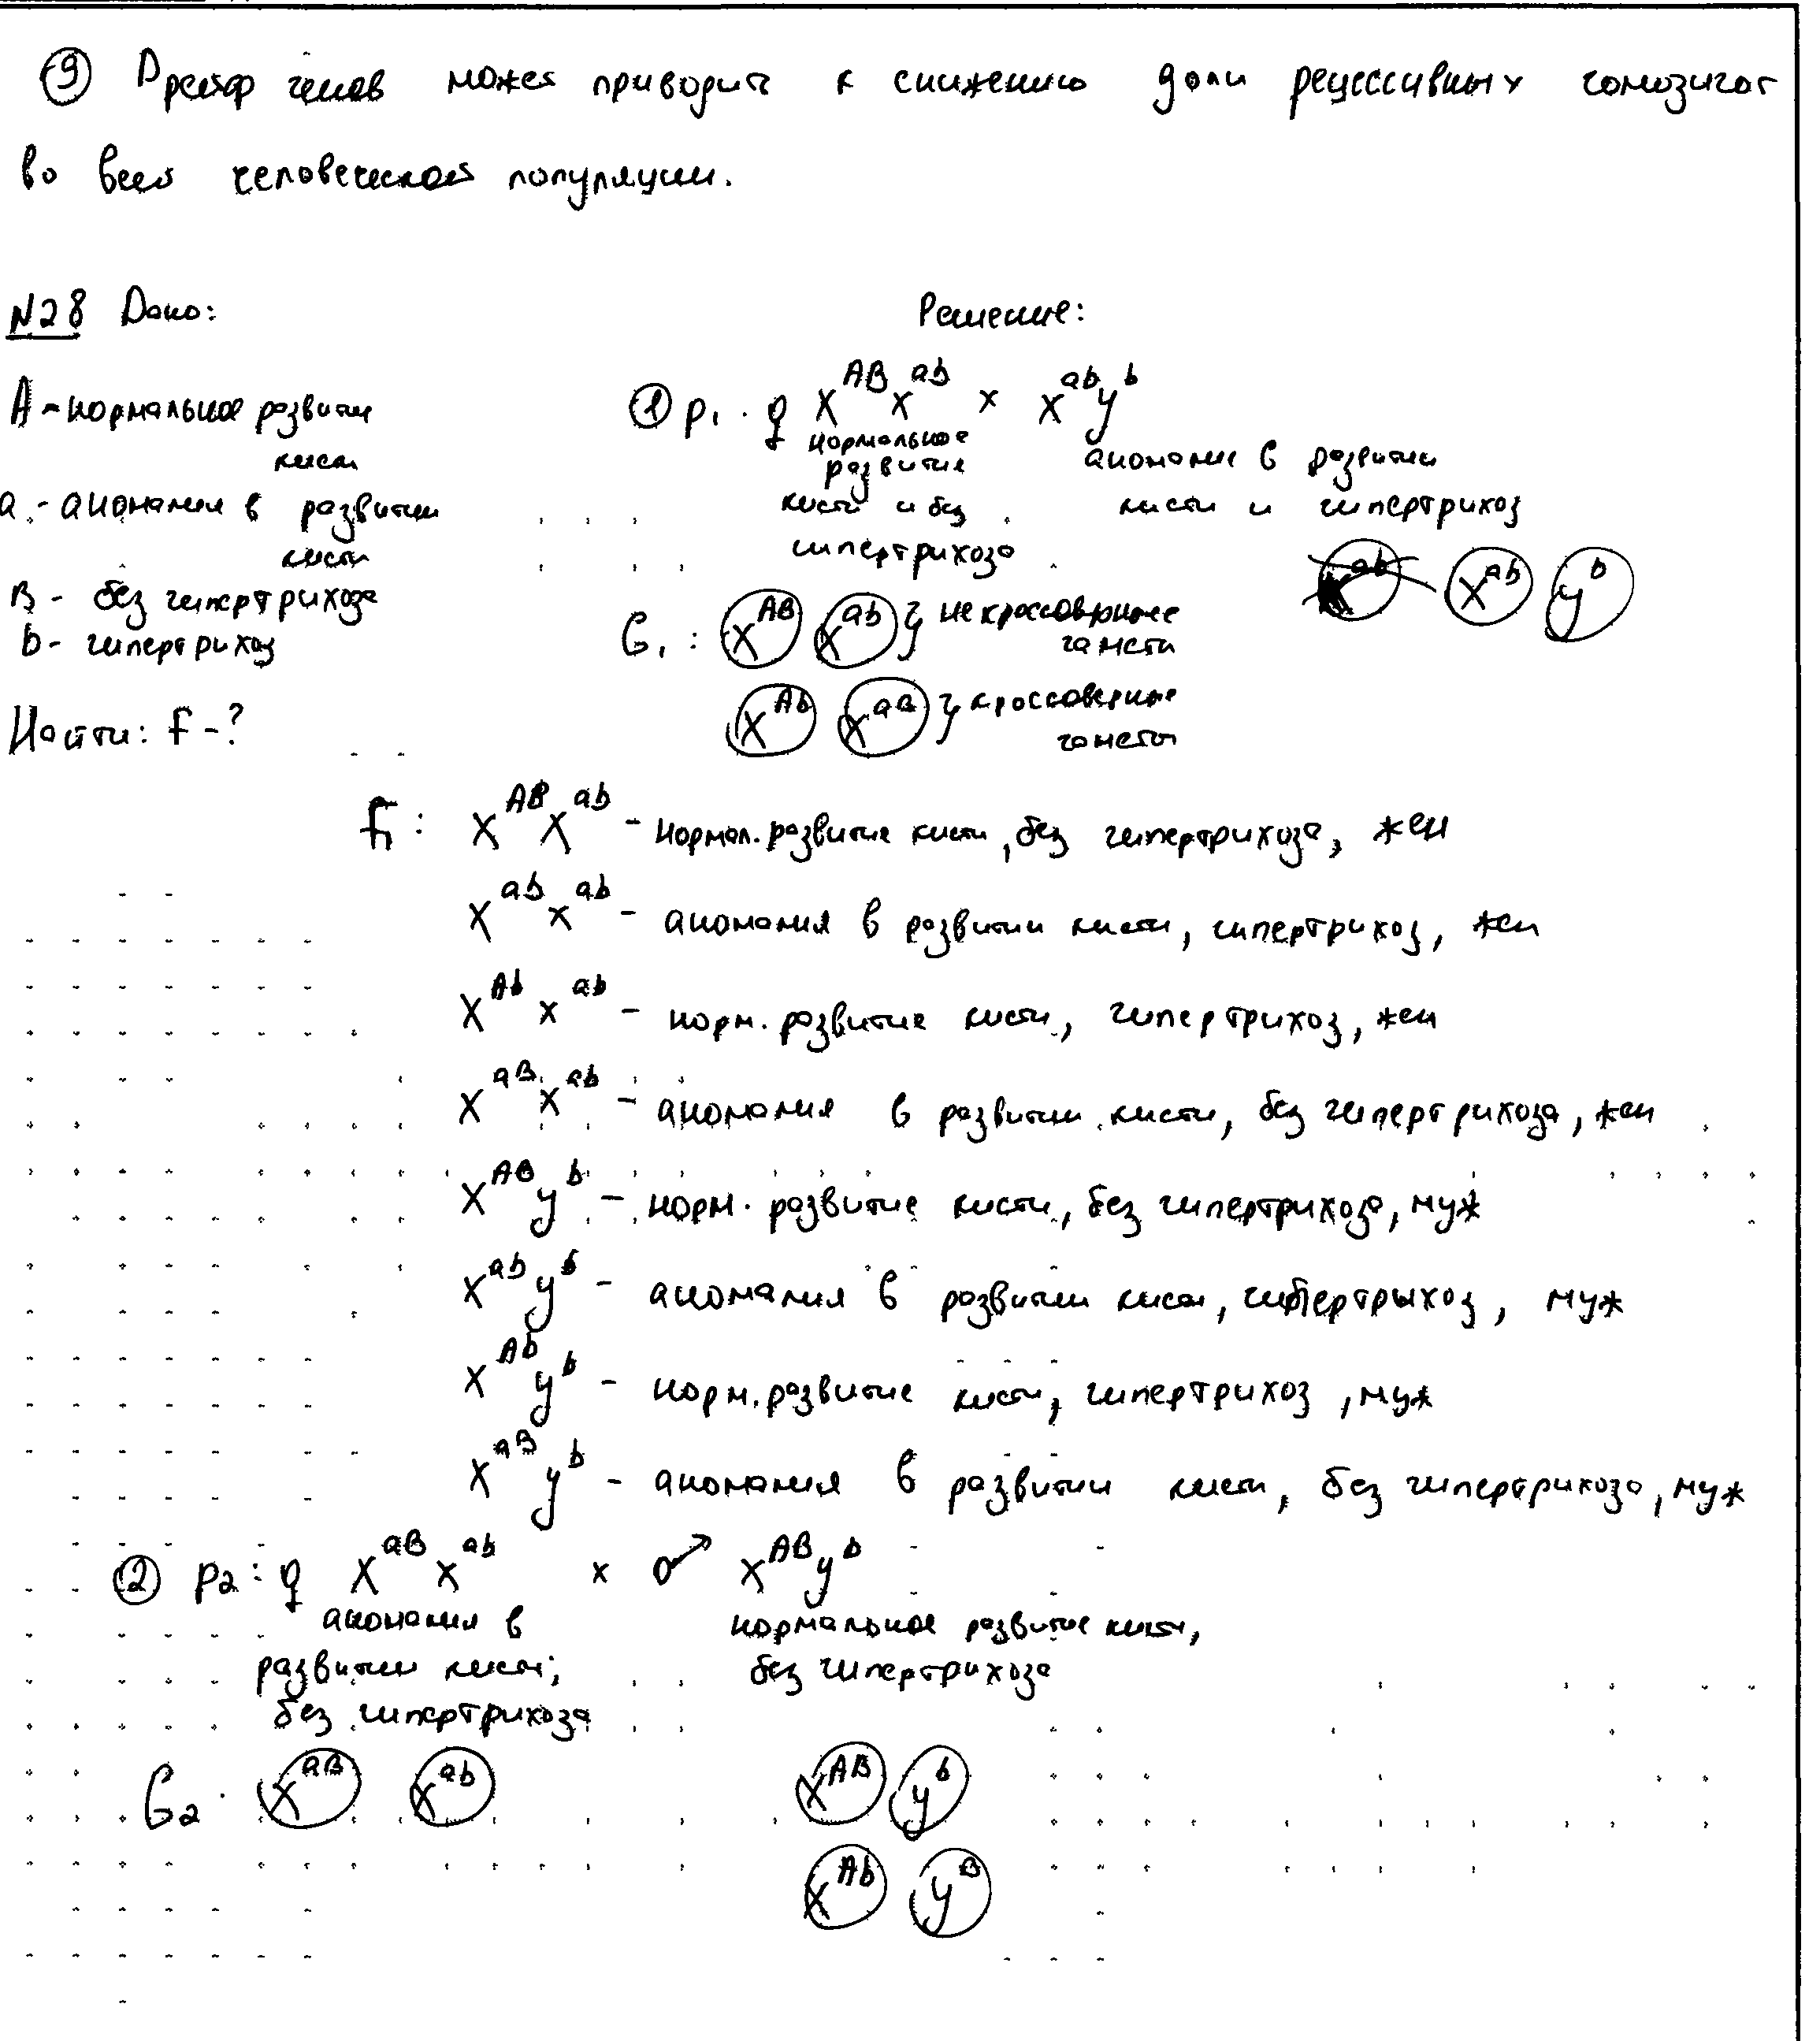 ⑨ Дрейф генов может приводить к снижению доли рецессивных гомозигот
во всей человеческой популяции.
N28 Дано:
Решение:
A - нормальное развитие
кисти
a - аномалия в развитии
кисти
B - без гипертрихоза
b - гипертрихоз
Найти: F - ?
① P₁: ♀ X^AB X^ab × X^ab y^b
нормальное развитие кисти и без гипертрихоза
аномалия в развитии кисти и гипертрихоз
G₁: X^AB X^ab } некроссоверные гаметы
X^ab y^b
X^Ab X^aB } кроссоверные гаметы
F₁: X^AB X^ab - нормал. развитие кисти, без гипертрихоза, жен
X^ab X^ab - аномалия в развитии кисти, гипертрихоз, жен
X^Ab X^ab - норм. развитие кисти, гипертрихоз, жен
X^aB X^ab - аномалия в развитии кисти, без гипертрихоза, жен
X^AB y^b - норм. развитие кисти, без гипертрихоза, муж
X^ab y^b - аномалия в развитии кисти, гипертрыхоз, муж
X^Ab y^b - норм. развитие кисти, гипертрихоз, муж
X^aB y^b - аномалия в развитии кисти, без гипертрихоза, муж
② P₂: ♀ X^aB X^ab × ♂ X^AB y^b
аномалия в
развитии кисти,
без гипертрихоза
нормальное развитие кисти,
без гипертрихоза
G₂: X^aB X^ab X^AB y^b
X^Ab y^B